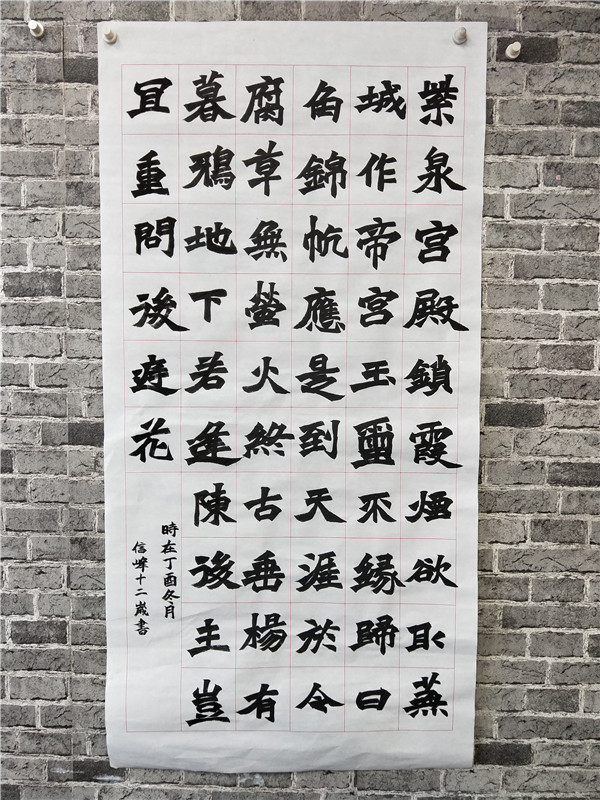 紫泉宮殿鎖霞煙欲取蕪
城作帝宮玉璽不緣歸日
角錦帆應是到天涯於今
腐草無螢火終古垂楊有
暮鴉地下若逢陳後主豈
冝重問後庭花
時在丁酉冬月
信峰十二歲書